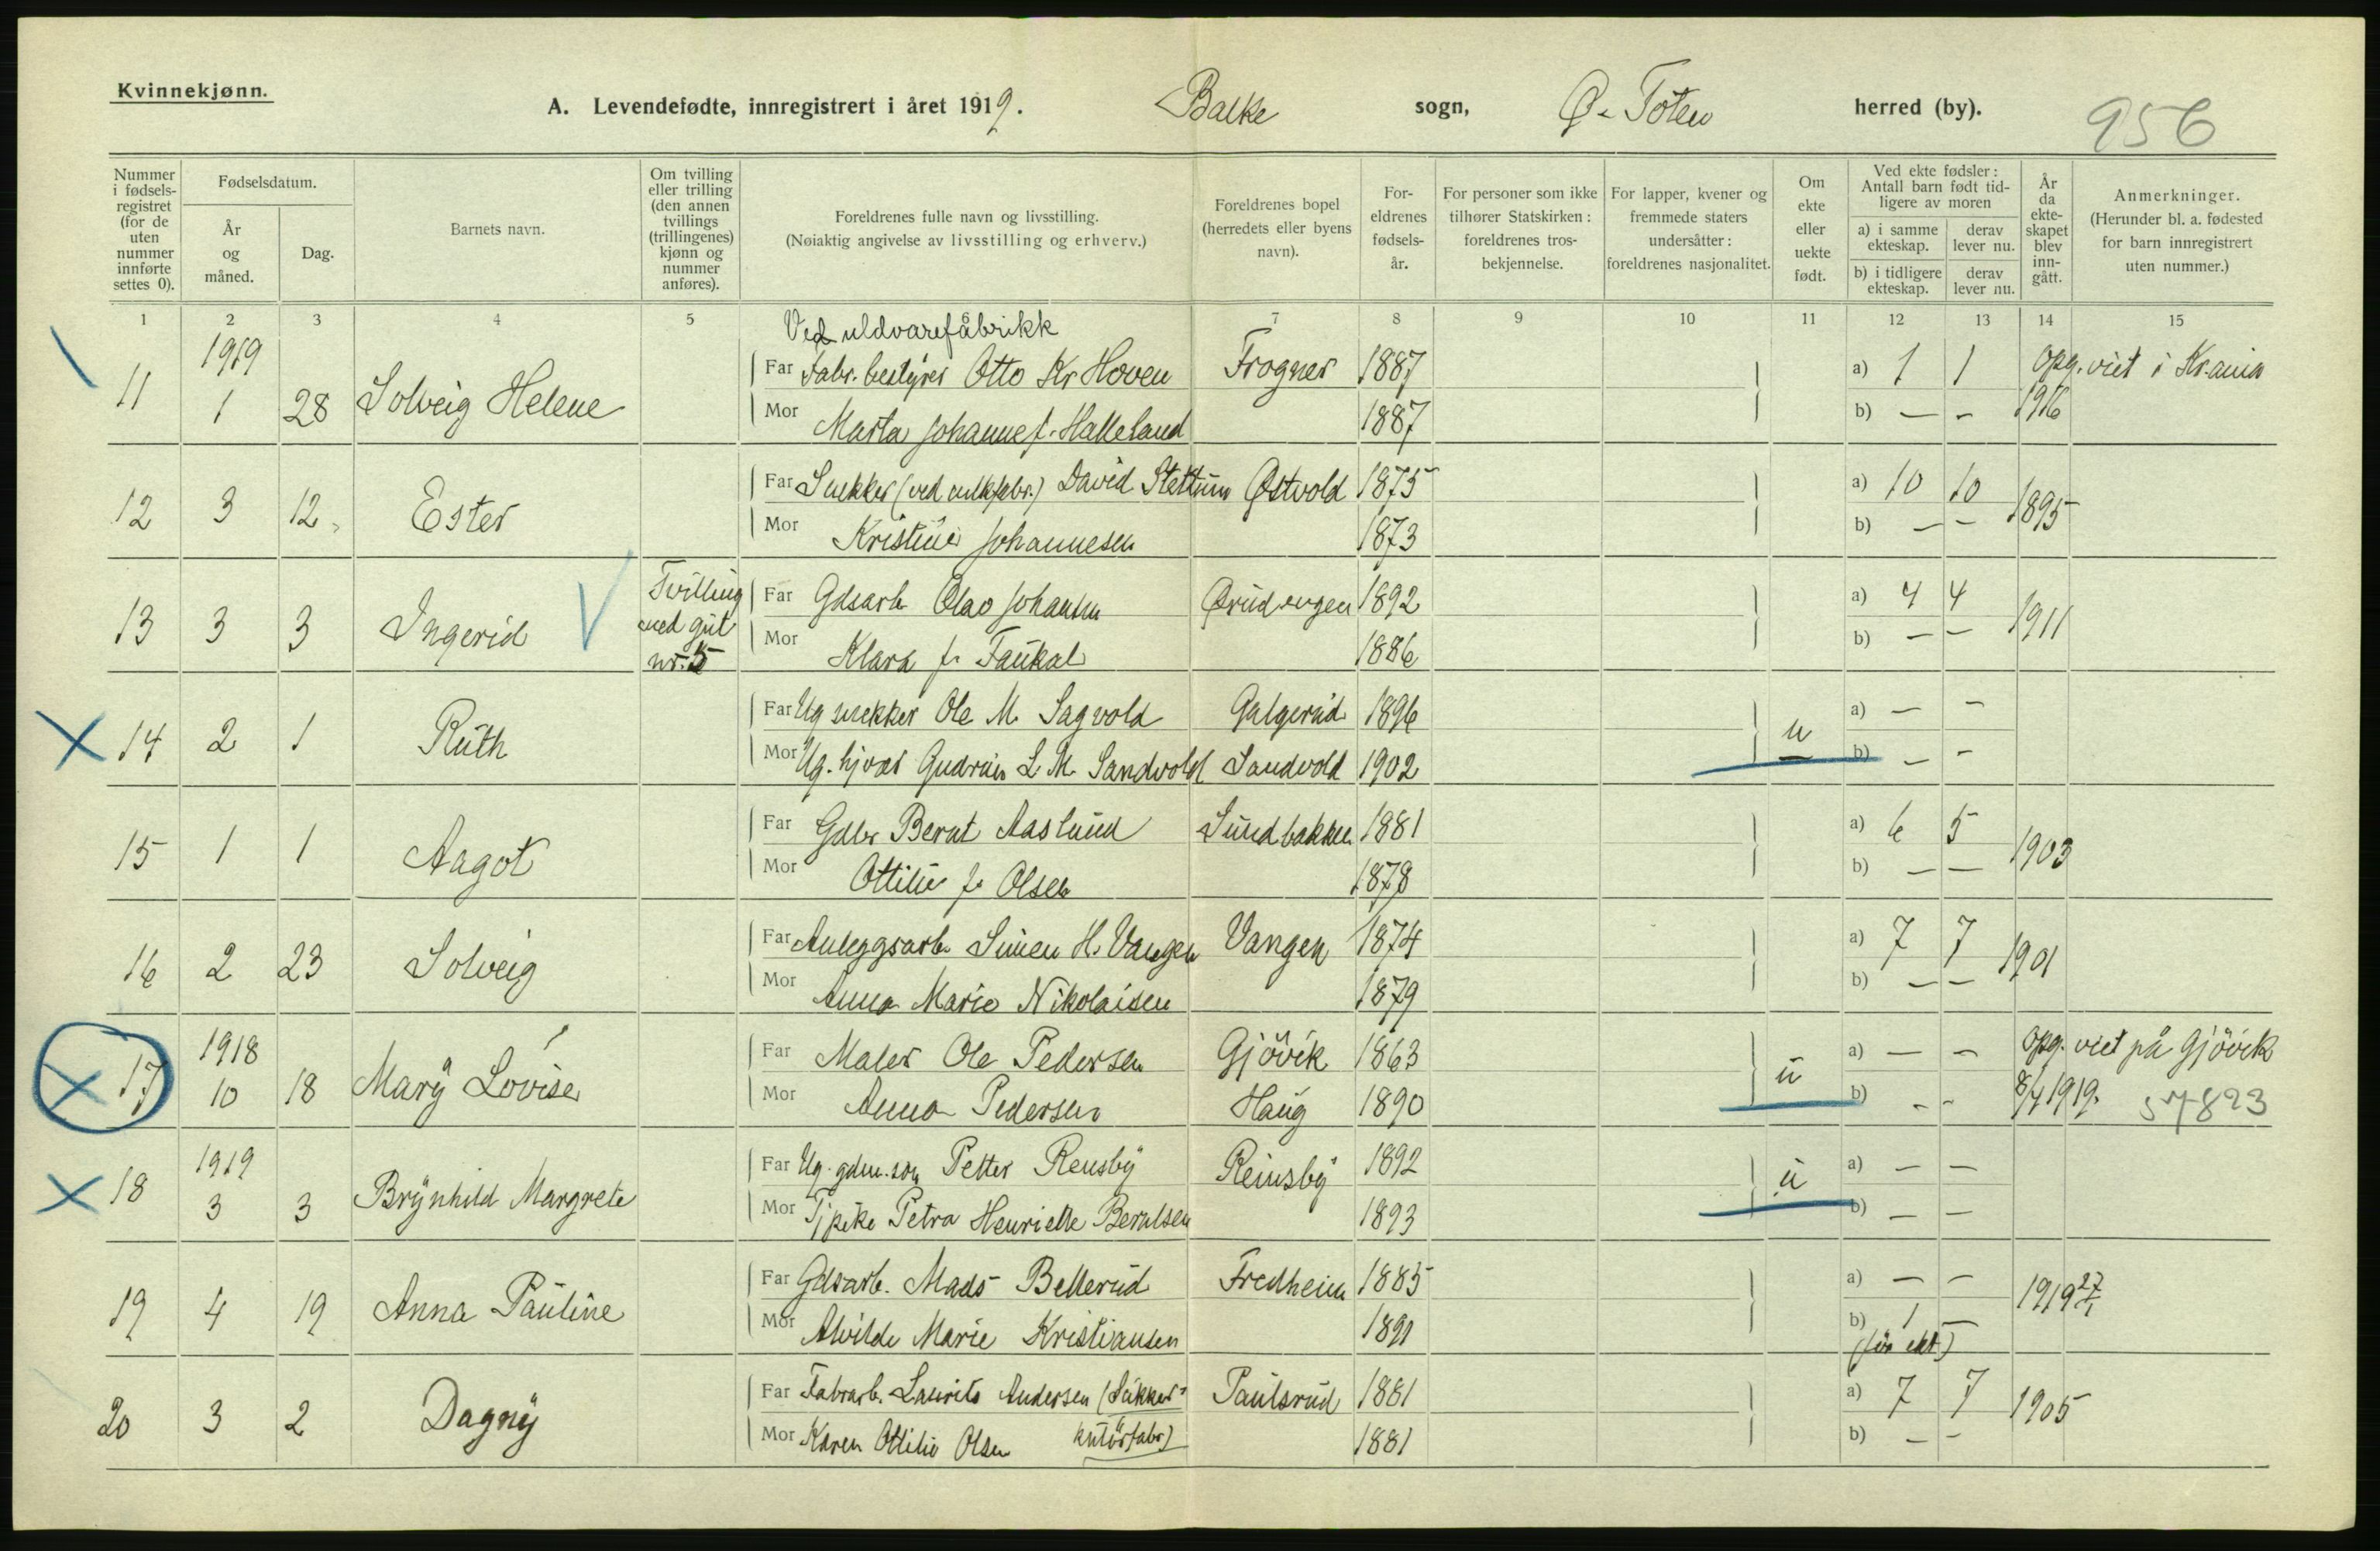 Kvinnekjønn.
A. Levendefødte, innregistrert i året 1919. Balke sogn, Ø. Toten herred (by). 956
Nummer i fødselsregistret (for de uten nummer innførte settes 0).
Fødselsdatum.
År og måned.
Dag.
Barnets navn.
Om tvilling eller trilling (den annen tvillings (trillingenes) kjønn og nummer anføres).
Foreldrenes fulle navn og livsstilling.
(Nøiaktig angivelse av livsstilling og erhverv.)
Foreldrenes bopel (herredets eller byens navn).
Foreldrenes fødselsår.
For personer som ikke tilhører Statskirken: foreldrenes trosbekjennelse.
For lapper, kvener og fremmede staters undersåtter: foreldrenes nasjonalitet.
Om ekte eller uekte født.
Ved ekte fødsler: Antall barn født tidligere av moren
a) i samme ekteskap. derav lever nu.
b) i tidligere ekteskap. derav lever nu.
År da ekteskapet blev inngått.
Anmerkninger.
(Herunder bl. a. fødested for barn innregistrert uten nummer.)
1 2 3 4 5 7 8 9 10 11 12 13 14 15
Ved uldvarefabrikk
1919
Far Fabr. bestyrer Otto Kr Hoven Frogner 1887 a) 1 1 opg. viet i Kr.ania
11 1 28 Solveig Helene
Mor Marta Johanne f. Halleland 1887 b) — - 1916
Far Snekker (ved) David Stettum Østvold 1875 a) 10 10
12 3 12 Ester 1895
Mor Kristine Johannesen 1873 b) — -
Tvilling med gut nr. 5
Far Gdsarb Olav Johansen 1892 a) 4 4
13 3 3 Ingerid 1911
Mor Klara f. Faukal 1886 b) — -
Far Ug snekker Ole M. Sagvold Galgerud 1896 a) — -
14 2 1 Ruth u
Mor Ug. Gudrun L. M. Sandvold Sandvold 1902 b) — -
Far Gdbr Bernt Aaslund Sundbakken 1881 a) 6 5
15 1 1 Aagot 1903
Mor Ottilie f. Olsen 1878 b) — —
Far Anleggsarb. Simen H. Vangen Vangen 1874 a) 7 7
16 2 23 Solveig 1901
Mor Anna Marie Nikolaisen 1879 b) — —
1918
Far Maler Ole Pedersen Gjøvik 1863 a) — - opg. viet på Gjøvik
17 10 18 Mary Lovise u
Mor Anna Pedersen Haug 1890 b) - - 8/4 1919. 57823
1919
Far Ug. gdm. søn Petter Rensby Reinsby 1892 a) — —
18 3 3 Brynhild Margrete u
Mor Tjpike Petra Henriette Berntsen 1893 b) — —
Far Gdsarb. Mads Bellerud Fredheim 1885 a) — —
19 4 19 Anna Pauline 1919 27/1
Mor Alvilde Marie Kristiansen 1891 b) 1 —
(før ekt)
Far Fabrarb. Laurits Andersen (Sukker- Paulsrud 1881 a) 7 7
20 3 2 Dagny 1905
Mor Karen Ottilie Olsen kulørfabr.) 1881 b) — -